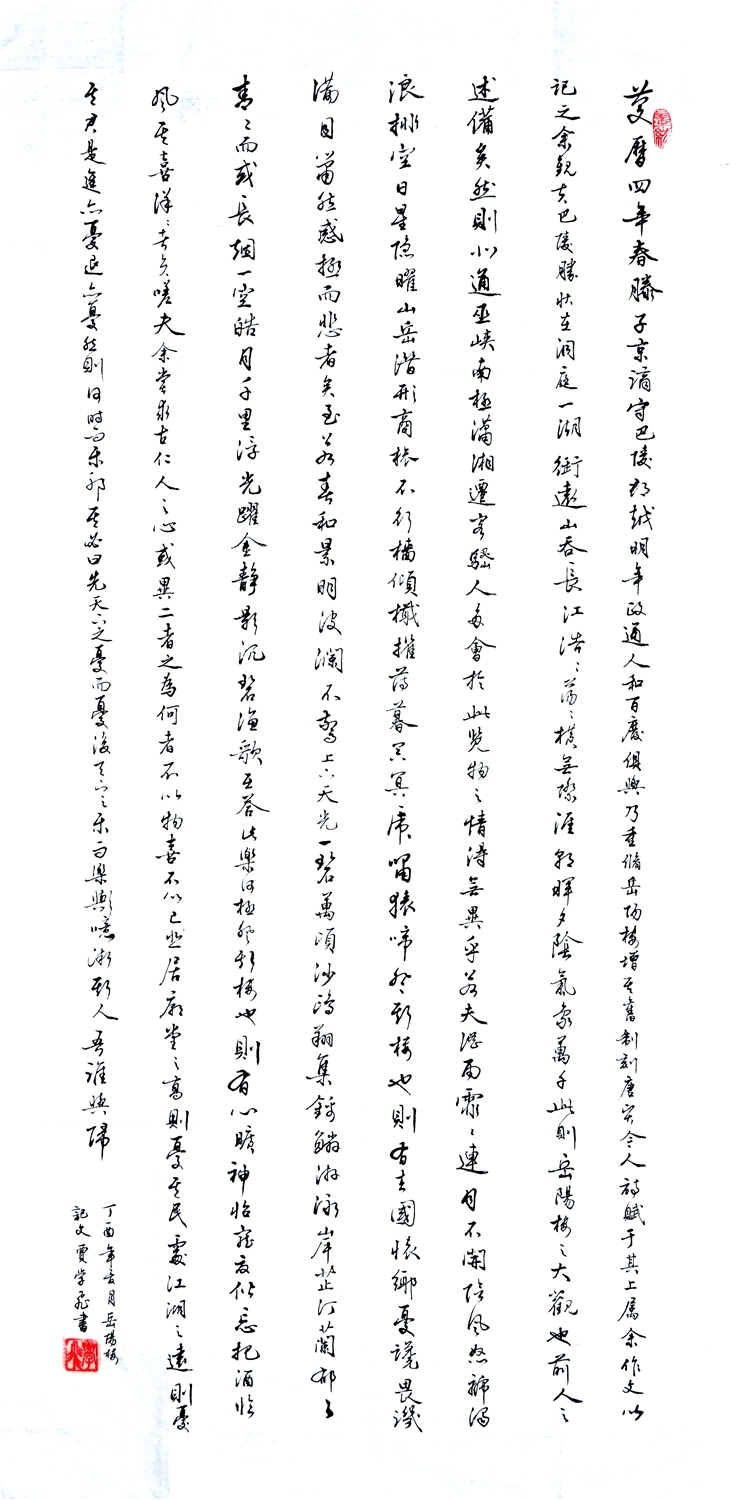 慶曆四年春滕子京謫守巴陵郡越明年政通人和百廢俱興乃重脩岳陽樓增其舊制刻唐賢今人詩賦于其上屬余作文以
記之余觀夫巴陵勝狀在洞庭一湖銜遠山吞長江浩々蕩々橫無際涯朝暉夕陰氣象萬千此則岳陽樓之大觀也前人之
述備矣然則北通巫峽南極瀟湘遷客騷人多會於此覽物之情得無異乎若夫淫雨霏々連月不開陰風怒號濁
浪排空日星隱曜山岳潛形商旅不行檣傾檝摧薄暮冥冥虎嘯猿啼登斯樓也則有去國懷鄉憂讒畏譏
滿目蕭然感極而悲者矣至若春和景明波瀾不驚上下天光一碧萬頃沙鷗翔集錦鱗游泳岸芷汀蘭郁々
青々而或長煙一空皓月千里浮光躍金靜影沉碧漁歌互答此樂何極登斯樓也則有心曠神怡寵辱偕忘把酒臨
風其喜洋々者矣嗟夫余嘗求古仁人之心或異二者之為何者不以物喜不以己悲居廟堂之高則憂其民處江湖之遠則憂
其君是進亦憂退亦憂然則何時而樂耶其必曰先天下之憂而憂後天下之樂而樂歟噫微斯人吾誰與歸
丁酉年 月岳陽樓
記文賈學 書